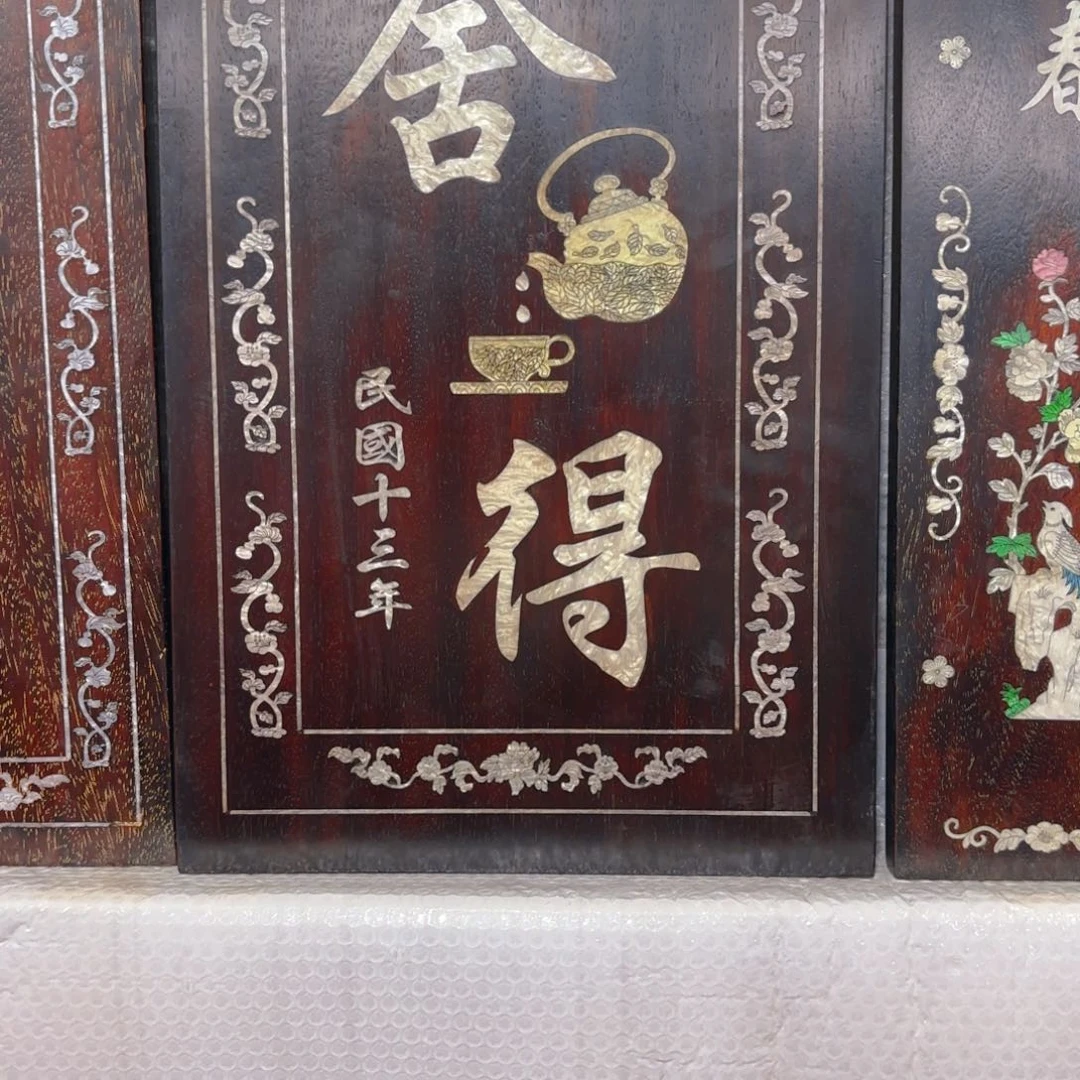 舍
得
民國十三年
春